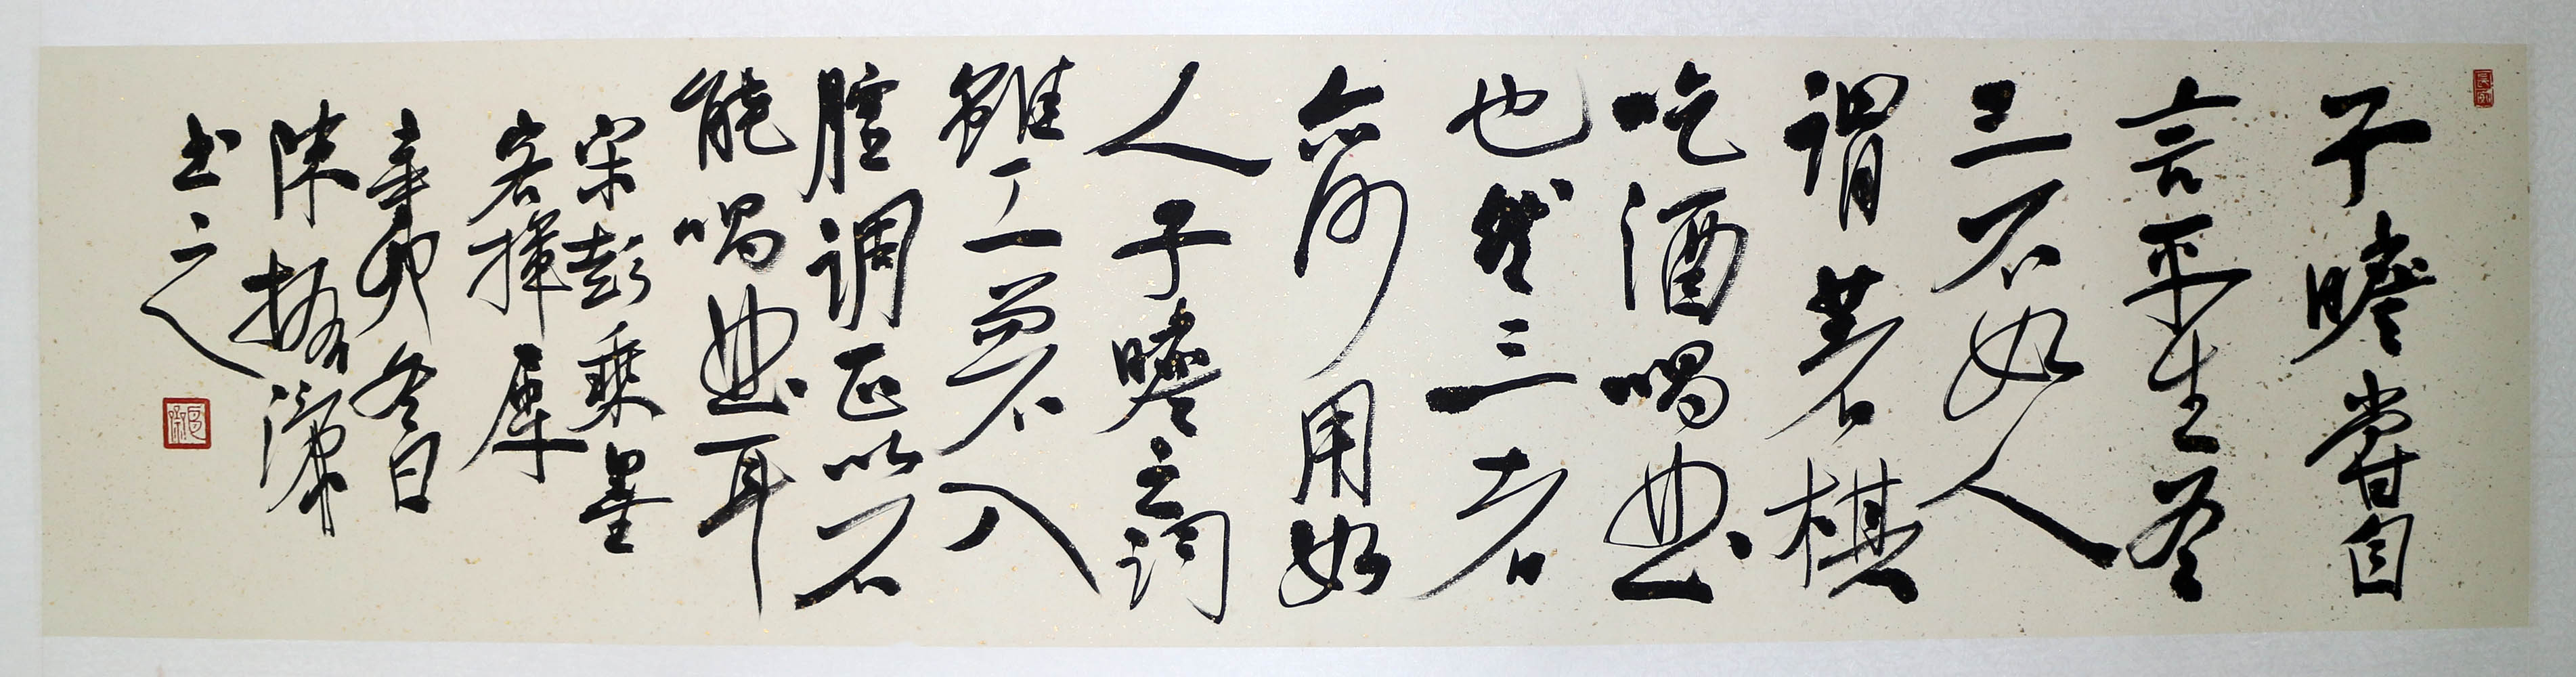 子瞻尝自
言平生有
三不如人
谓著棋
吃酒唱曲
也然三者
亦何用如
人子瞻之词
虽工而不入
腔调正以不
能唱曲耳
宋彭乘墨
客挥犀
辛卯冬日
陈振濂
书之